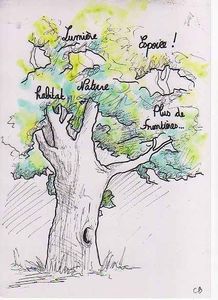 Lumière
Espace !
habitat
Nature
Plus de
frontières...
CB